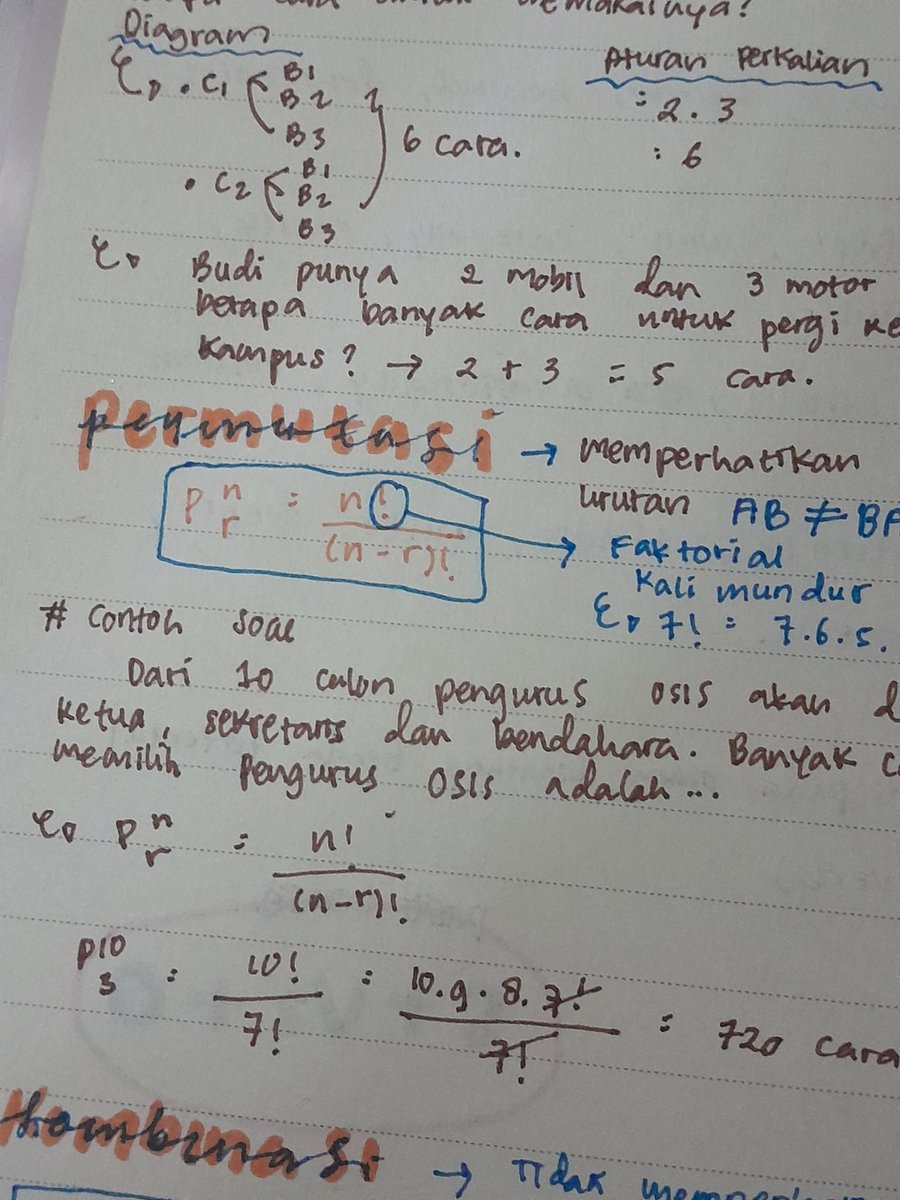 memakainya?
Diagram
Aturan Perkalian
• C1 B1 B2 B3
• C2 B1 B2 B3
6 cara.
= 2 . 3
: 6
Budi punya 2 mobil dan 3 motor
berapa banyak cara untuk pergi ke
kampus? → 2 + 3 = 5 cara.
permutasi → memperhatikan
ururan AB ≠ BA
P n r = n! / (n-r)!
Faktorial
Kali mundur
7! = 7.6.5.
# Contoh soal
Dari 10 calon pengurus OSIS akan
ketua, sekretaris dan bendahara. Banyak
memilih pengurus OSIS adalah...
P n r = n! / (n-r)!
P10 3 = 10! / 7! = 10.9.8.7! / 7! = 720 cara
Kombinasi → Tidak